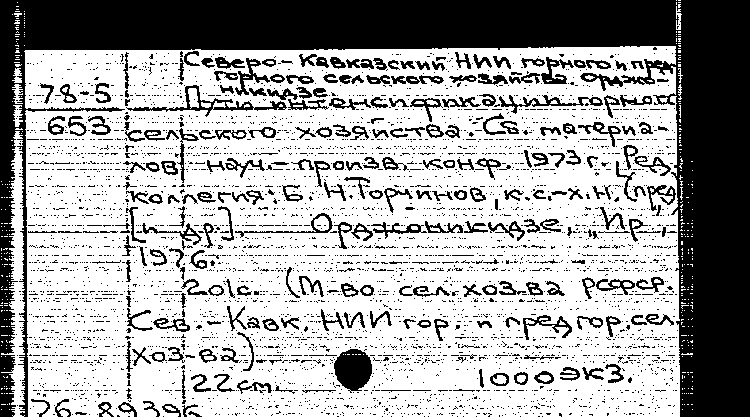 Северо-Кавказский НИИ горного и пред
горного сельского хозяйства. Орджо-
никидзе.
78-5
Пути интенсификации горного
653
сельского хозяйства. Сб. материа-
лов науч.-произв. конф. 1973 г. [Ред.
коллегия: Б. Н. Торчинов, к.с.-х.н. (пред)
[и др.]. Орджоникидзе, „Ир",
1976.
201 с. (М-во сел. хоз-ва РСФСР.
Сев.-Кавк. НИИ гор. и предгор. сел.
хоз-ва)
22 см. 1000 экз.
76-89396